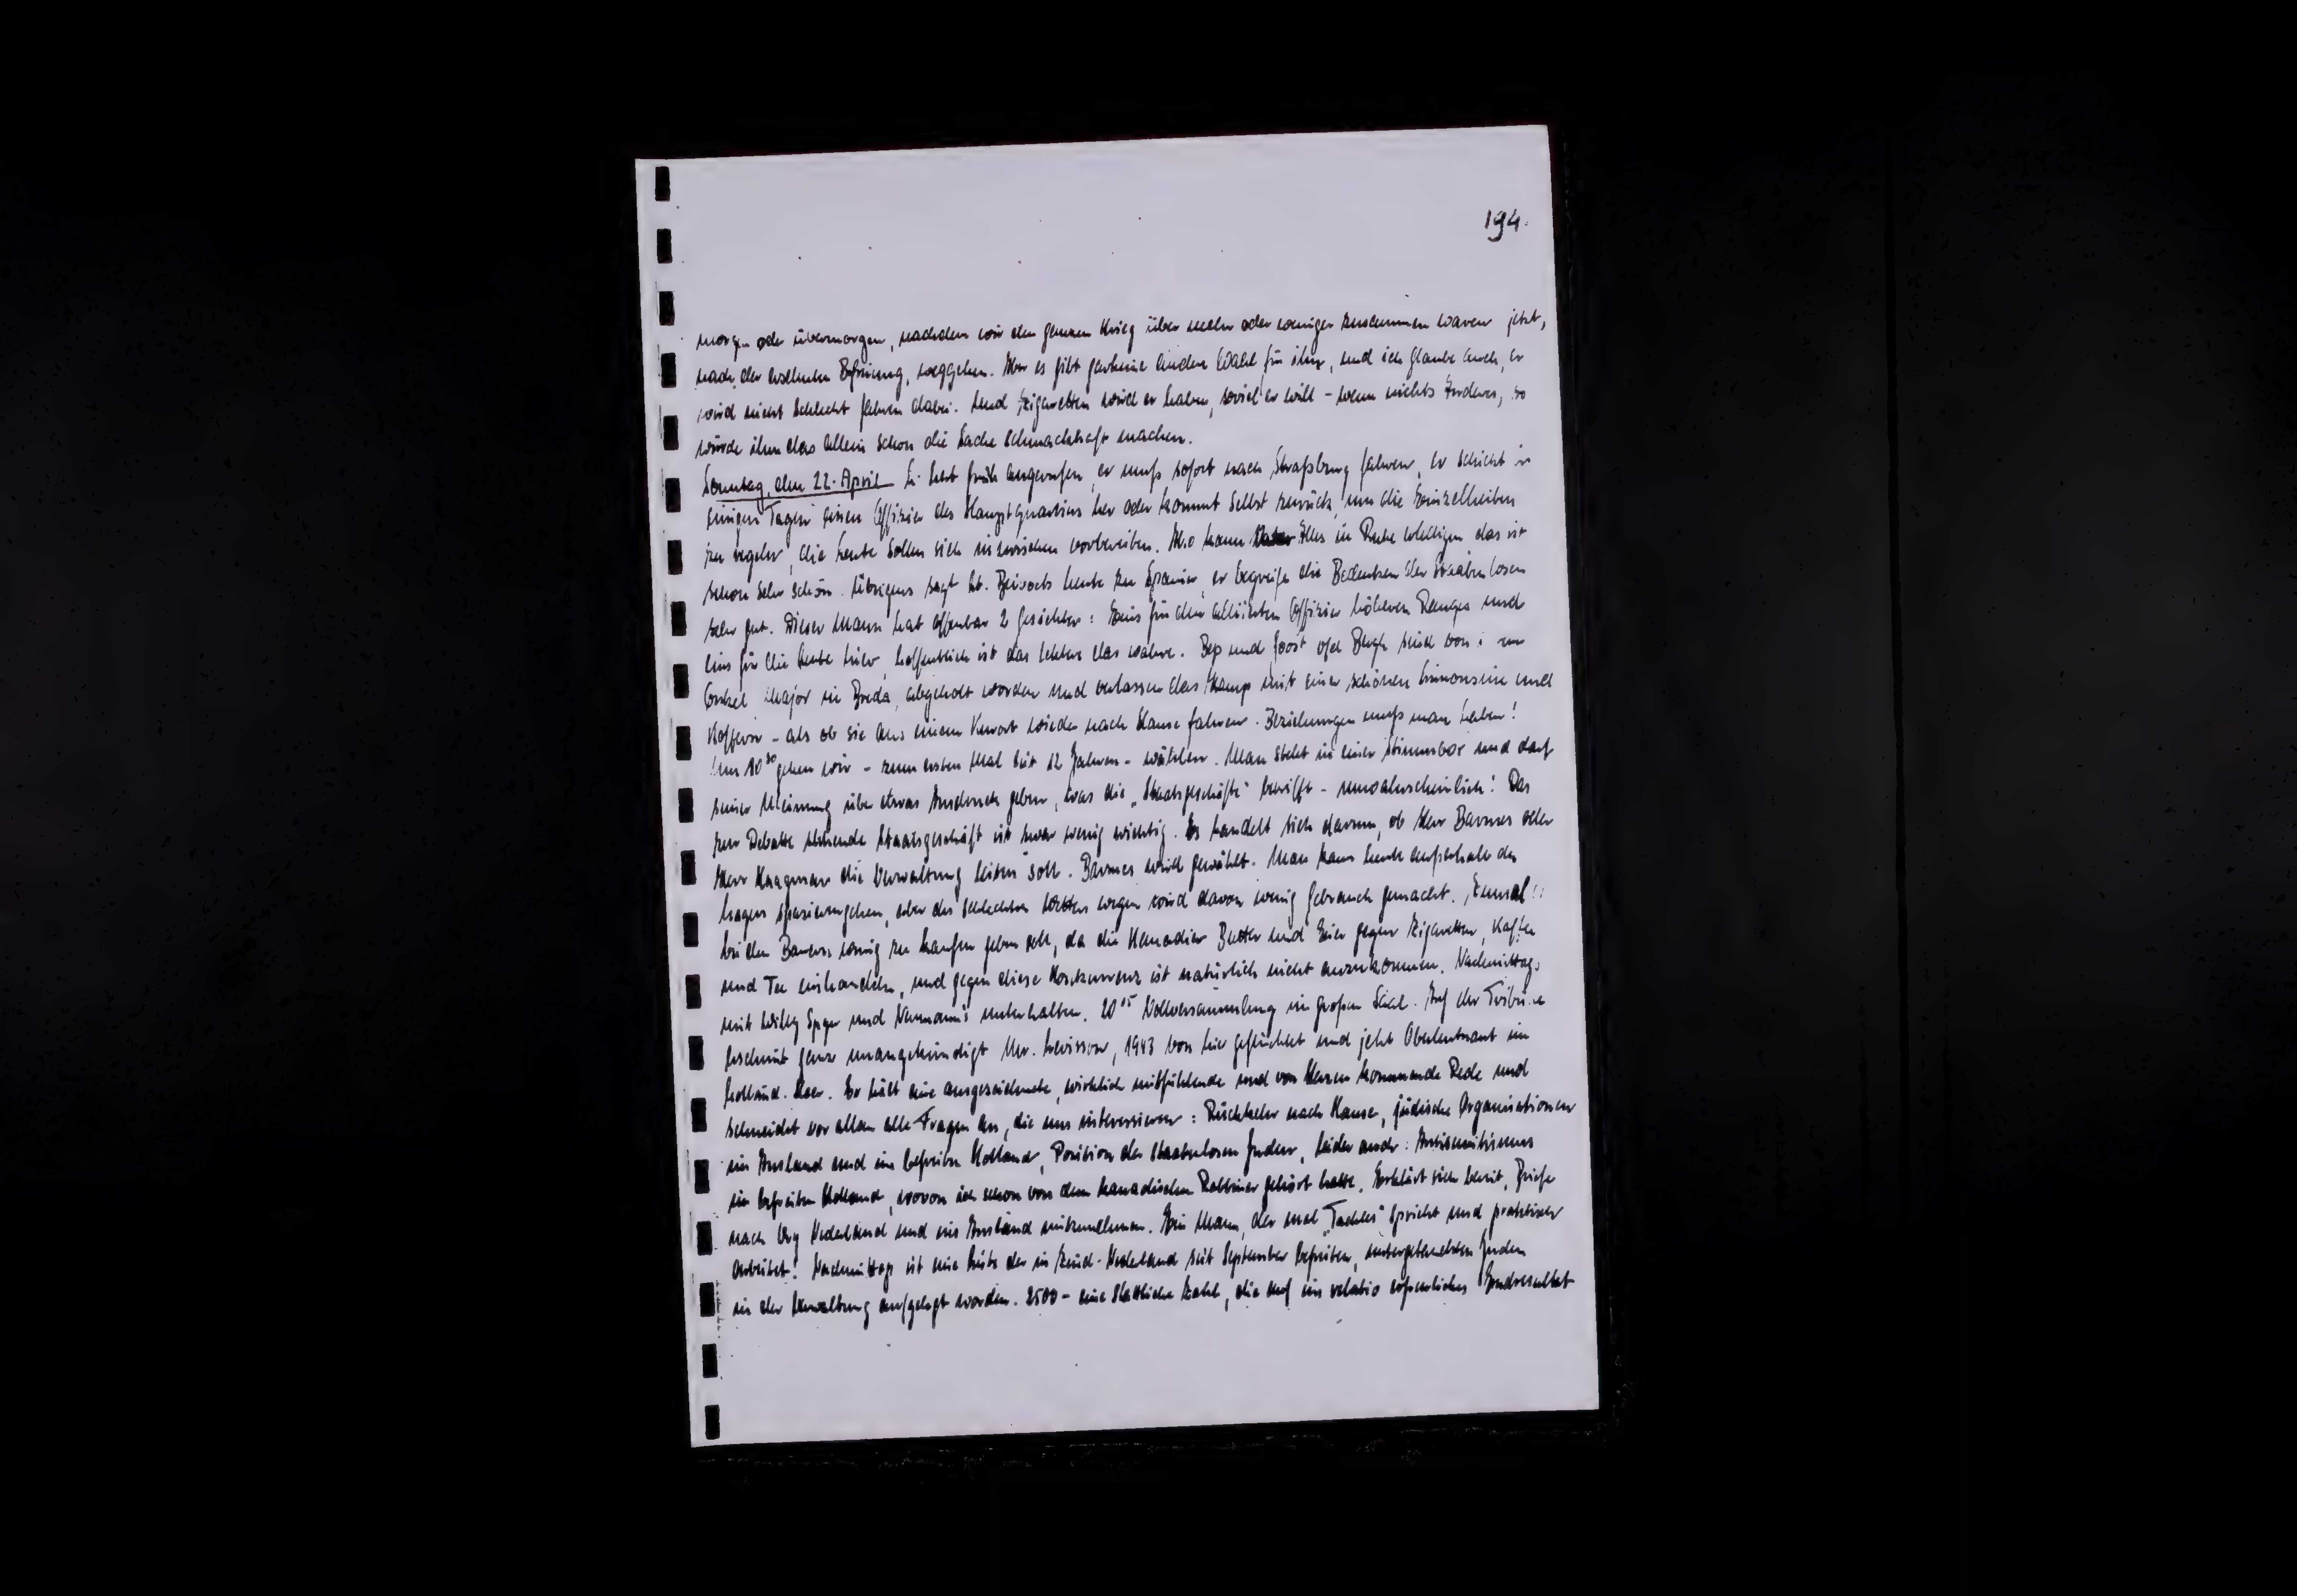 194.
morgen oder übermorgen, nachdem wir den ganzen Krieg über mehr oder weniger zusammen waren jetzt,
nach der ersehnten Befreiung, weggehen. Aber es gibt gar keine andere Wahl für ihn, und ich glaube auch, er
wird nicht schlecht fahren dabei. Und Zigaretten wird er haben, soviel er will - wenn nichts Anderes, so
würde ihm das allein schon die Sache schmackhaft machen.
Sonntag, den 22. April hat früh angerufen, er muß sofort nach Straßburg fahren, er schickt in
einigen Tagen einen Offizier des Hauptquartiers her oder kommt selbst zurück, um die Einzelheiten
zu regeln, die Leute sollen sich inzwischen vorbereiten. Also kann Alles in Ruhe erledigen das ist
schon sehr schön. Übrigens sagt heute zu Spanier, er begreife die Bedenken der Staatenlosen
sehr gut. Dieser Mann hat offenbar 2 Gesichter: Eins für den alliierten Offizier höheren Ranges und
eins für die Leute hier, hoffentlich ist das letztere das wahre. Bep und Joost sind von
Onkel Major in Breda, abgeholt worden und verlassen das Kamp mit einer schönen Limousine und
Koffern - als ob sie aus einem Kurort wieder nach Hause fahren. Beziehungen muß man haben!
Um 10 30 gehen wir - zum ersten Mal seit 12 Jahren - wählen. Man steht in einer Stimmbox und darf
seiner Meinung über etwas Ausdruck geben, was die „Staatsgeschäfte" betrifft - unwahrscheinlich! Das
zur Debatte stehende Staatsgeschäft ist zwar wenig wichtig. Es handelt sich darum, ob Herr Barmes oder
Herr Kaagman die Verwaltung leiten soll. Barmes wird gewählt. Man kann heute außerhalb des
Lagers spazierengehen, aber des schlechten Wetters wegen wird davon wenig Gebrauch gemacht. Zumal
bei den Bauern wenig zu kaufen geben soll, da die Kanadier Butter und Eier gegen Zigaretten, Kaffee
und Tee einhandeln, und gegen diese Konkurrenz ist natürlich nicht anzukommen. Nachmittags
mit Willy und Neumann's unterhalten. 20 15 Vollversammlung im großen Saal. Auf der Tribüne
erscheint ganz unangekündigt Mr. Levisson, 1943 von hier geflüchtet und jetzt Oberleutnant im
holländ. Heer. Er hält eine ausgezeichnete, wirklich mitfühlende und von Herzen kommende Rede und
schneidet vor allem alle Fragen an, die uns interessieren: Rückkehr nach Hause, jüdische Organisationen
im Ausland und im befreiten Holland, Position der staatenlosen Juden, leider auch: Antisemitismus
im befreiten Holland, wovon ich schon von dem kanadischen Rabbiner gehört hatte. Erklärt sich bereit, Briefe
nach Nederland und ins Ausland mitzunehmen. Ein Mann, der mal „Tachles" spricht und praktisch
arbeitet! Nachmittags ist eine Liste der in Zuid-Nederland seit September befreiten, untergetauchten Juden
in der Verwaltung aufgelegt worden. 2500 - eine stattliche Zahl, die auf ein relativ erfreuliches Endresultat